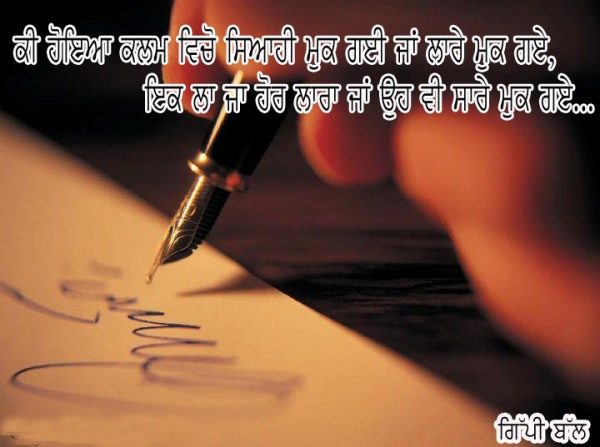 ਕੀ ਹੋਇਆ ਕਲਮ ਵਿਚੋ ਸਿਆਹੀ ਮੁਕ ਗਈ ਜਾਂ ਲਾਰੇ ਮੁਕ ਗਏ,
ਇਕ ਲਾ ਜਾ ਹੋਰ ਲਾਰਾ ਜਾਂ ਉਹ ਵੀ ਸਾਰੇ ਮੁਕ ਗਏ...
ਗਿੱਪੀ ਬੱਲ